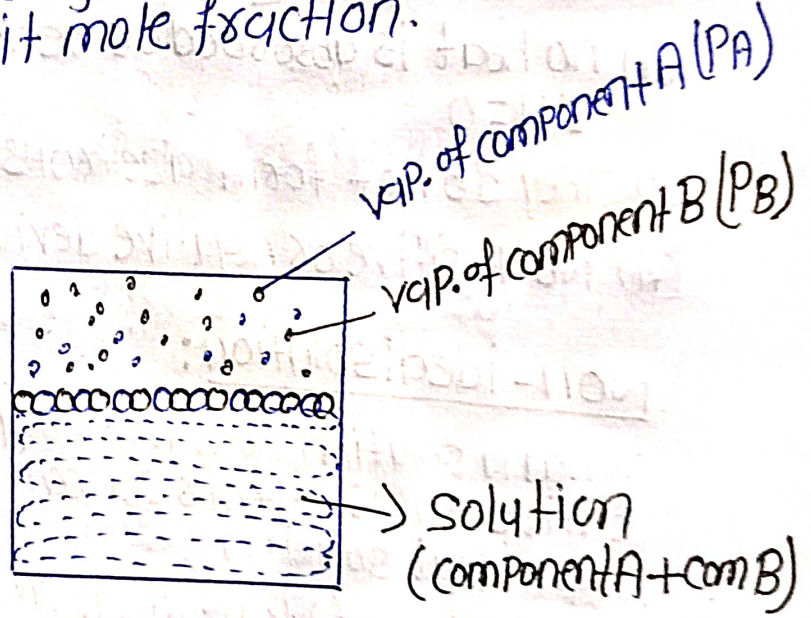 it mole fraction.
vap. of component A (PA)
vap. of component B (PB)
solution
(component A + com B)